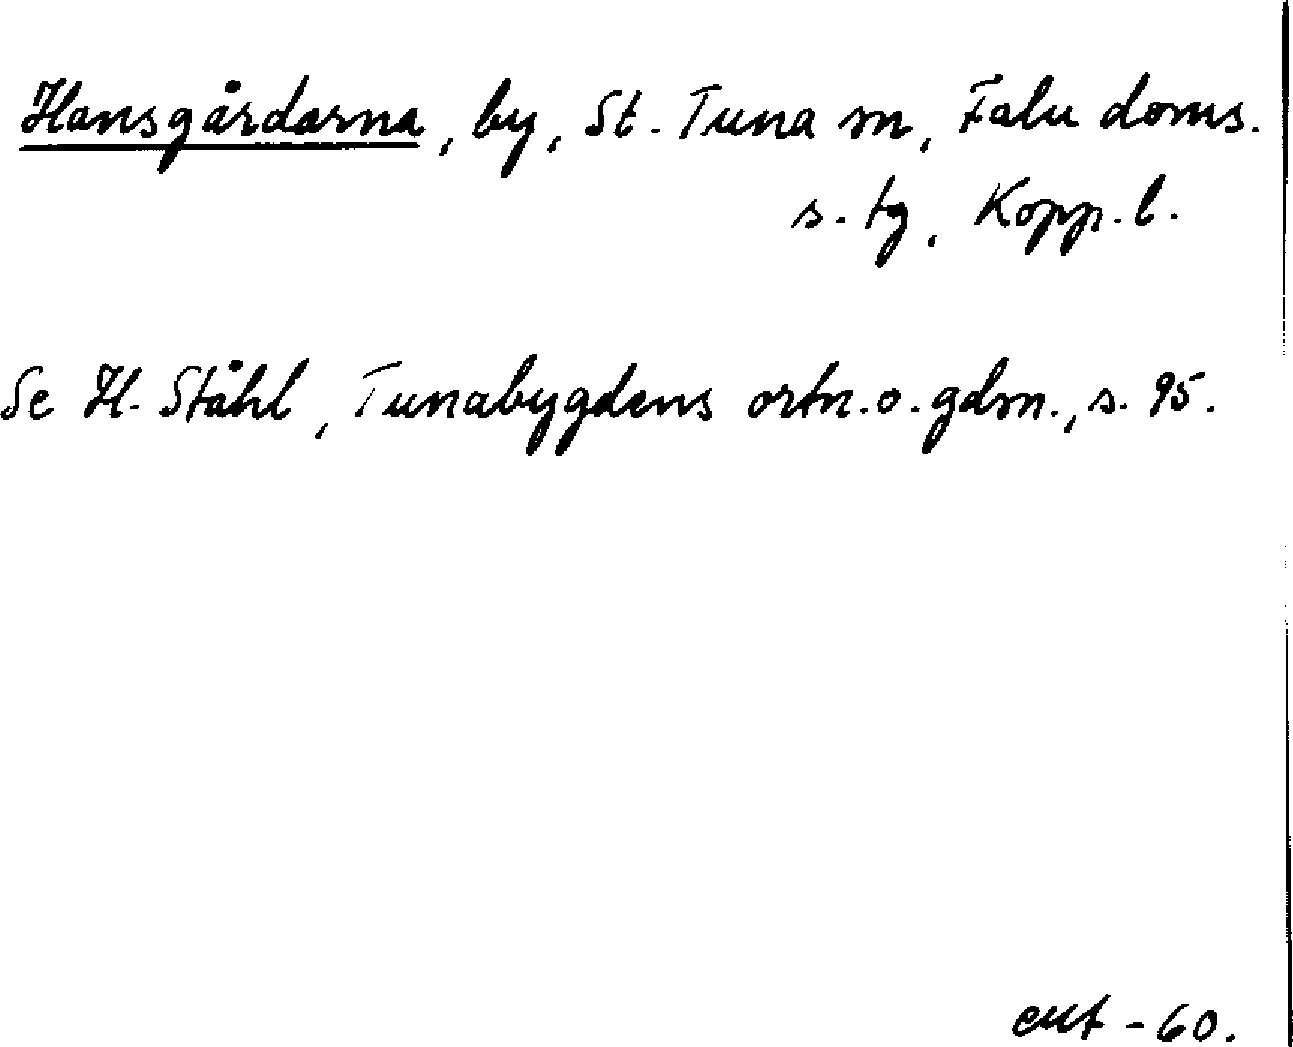 Hansgårdarna, by, St. Tuna sn, Falu doms.
s. tg, Kopp. l.
Se H. Ståhl, Tunabygdens ortn. o. gdsn., s. 95.
- 60.